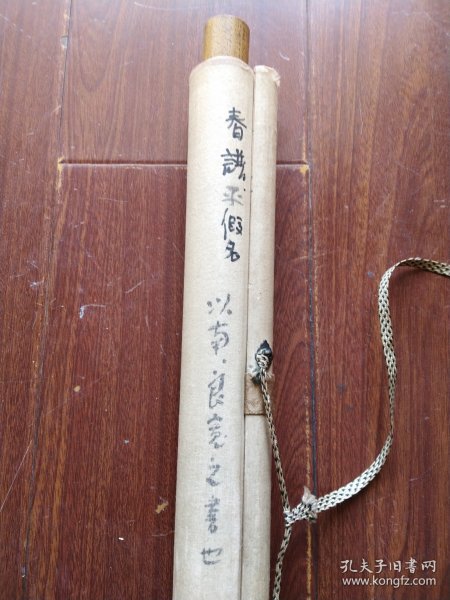 春譜平假名
以南・良寛之書也
孔夫子旧书网
www.kongfz.com